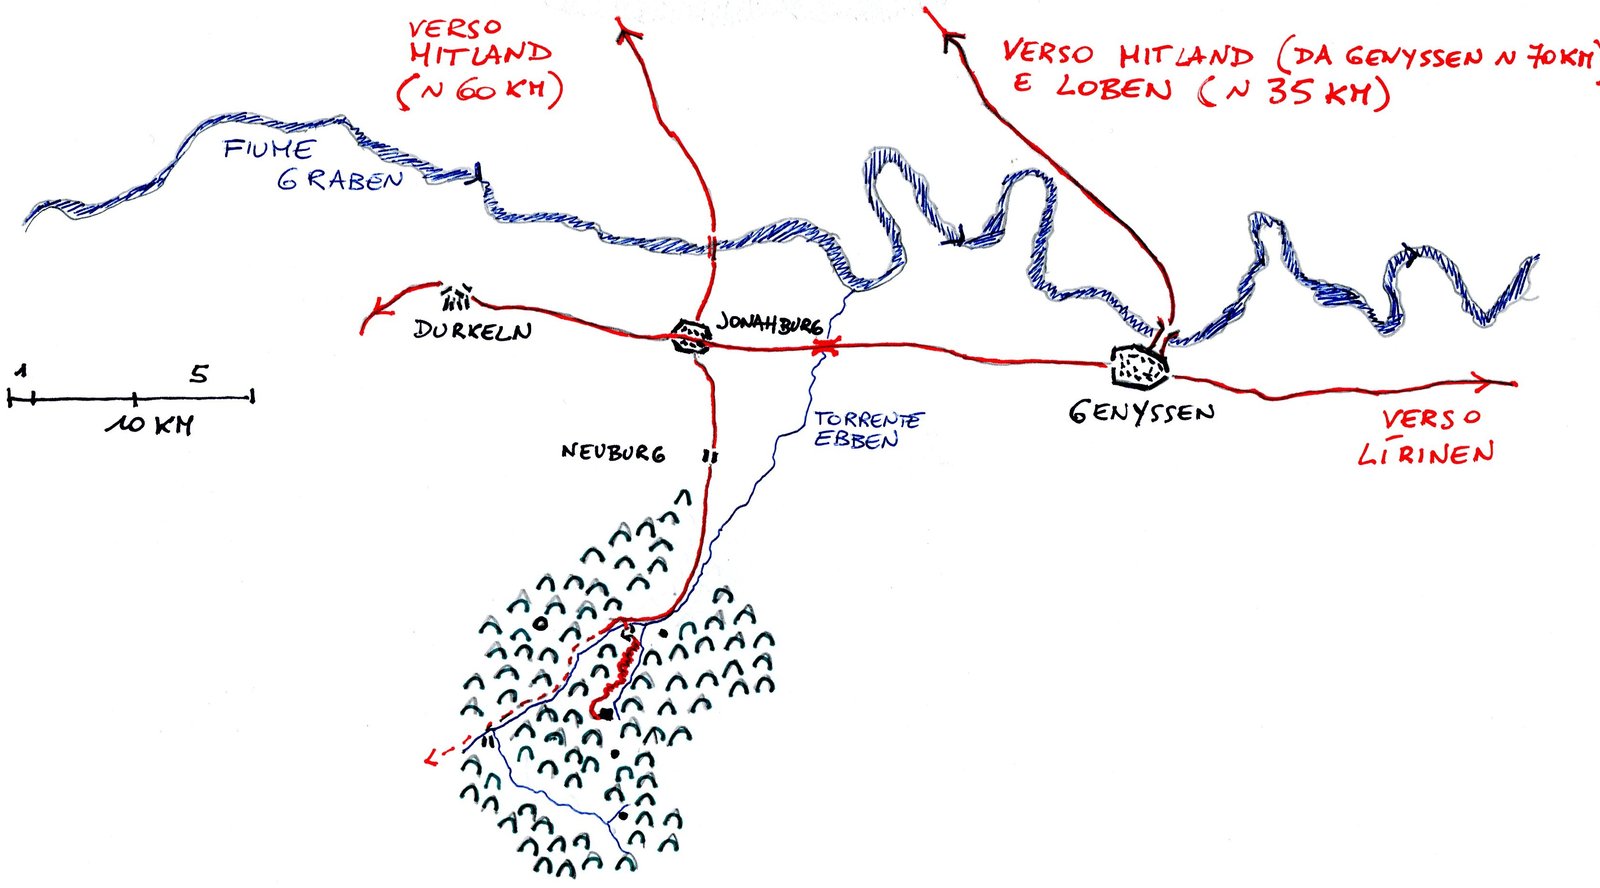 VERSO
MITLAND
(~ 60 KM)
VERSO MITLAND (DA GENYSSEN ~ 70KM)
E LOBEN (~ 35 KM)
FIUME
GRABEN
DURKELN
JONAHBURG
1 5
10 KM
GENYSSEN
TORRENTE
EBBEN
VERSO
LÍRINEN
NEUBURG